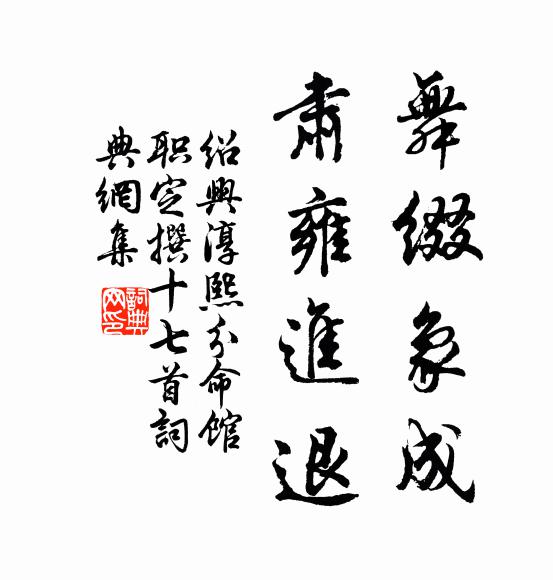 舞綴象成
肅雍進退
紹興淳熙分命館
职定撰十七首詞
典網集
詞典
网印